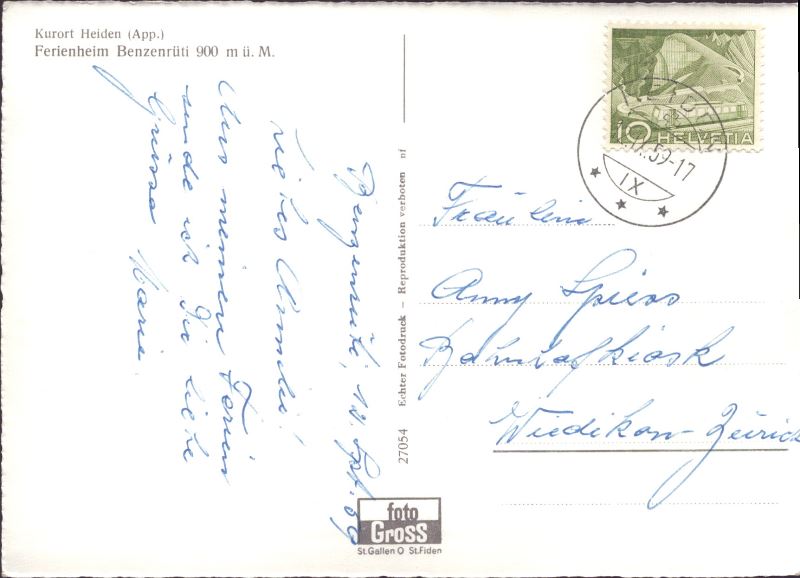 Kurort Heiden (App.)
Ferienheim Benzenrüti 900 m ü. M.
Benzenrüti, 12. Spt. 59
Liebes Anneli!
Aus meinen Ferien
sende ich Dir liebe
Grüsse Marie.
27054 Echter Fotodruck – Reproduktion verboten nf
foto
Gross
St.Gallen O St.Fiden
10 HELVETIA
59-17
IX
Fräulein
Anny Spiess
Bahnhofkiosk
Wiedikon-Zürich